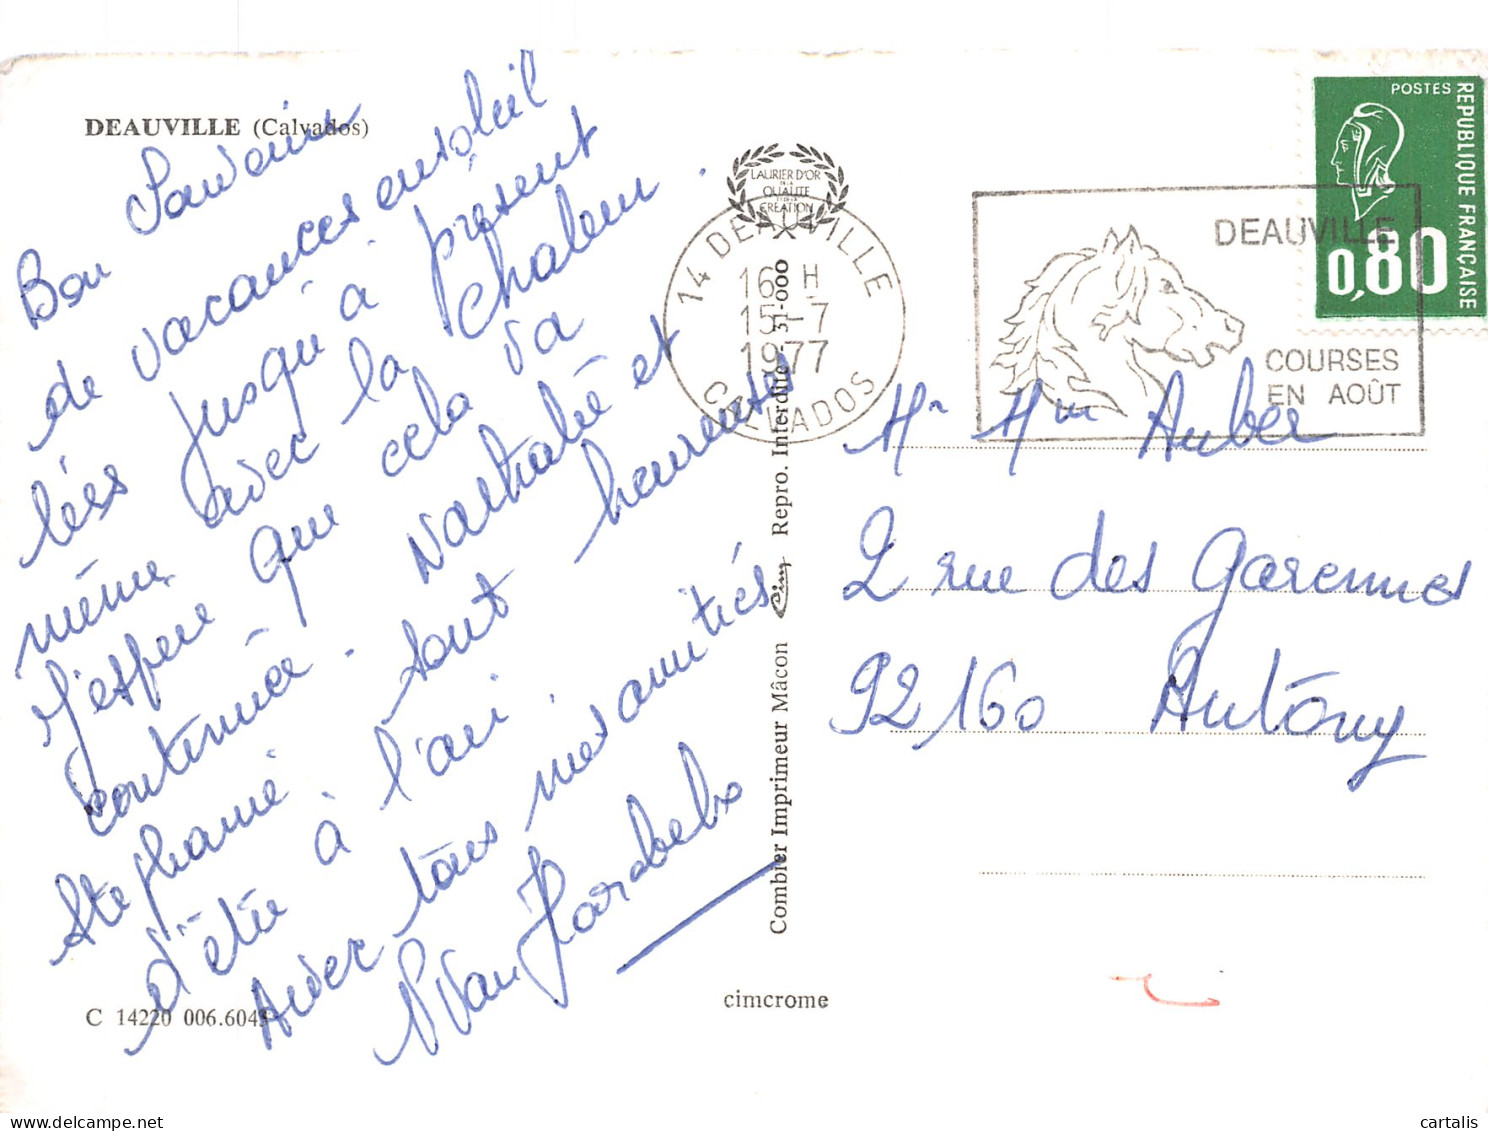 DEAUVILLE (Calvados)
Bon Souvenir
de vacances ensoleil
lées jusqu'à présent
même avec la chaleur.
J'espère que cela va
continué. Nathalie et
Stephanie sont heureuses
d'être à l'air.
Avec tous mes amitiés
C 14220 006.6045
LAURIER D'OR
DE LA
QUALITE
ET DE LA
CREATION
14 DEAUVILLE
16 H
15-7
1977
CALVADOS
Combier Imprimeur Mâcon Repro. Interdite - 31-000
cimcrome
DEAUVILLE
COURSES
EN AOÛT
POSTES
REPUBLIQUE FRANÇAISE
0,80
Mr Mm Auber
2 rue des Garennes
92160 Antony
cartalis